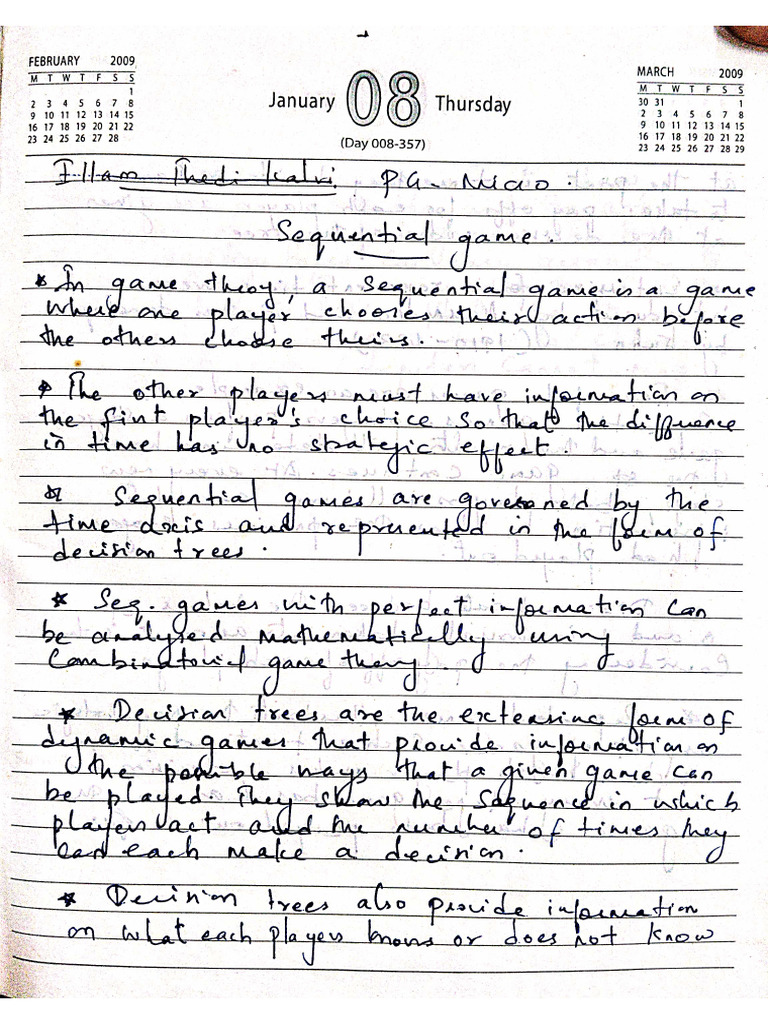 FEBRUARY 2009
M T W T F S S
1
2 3 4 5 6 7 8
9 10 11 12 13 14 15
16 17 18 19 20 21 22
23 24 25 26 27 28
January 08 Thursday
(Day 008-357)
MARCH 2009
M T W T F S S
30 31 1
2 3 4 5 6 7 8
9 10 11 12 13 14 15
16 17 18 19 20 21 22
23 24 25 26 27 28 29
Illam Thedi Kalvi P.G-Micro.
Sequential game.
* In game theoy, a Sequential game is a game
where one player chooses their action before
the others choose theirs.
* The other players must have information on
the first player's choice so that the difference
in time has no strategic effect.
* Sequential games are governed by the
time axis and represented in the form of
decision trees.
* Seq. games with perfect information can
be analysed mathematically using
Combinatorial game theory.
* Decision trees are the extensive form of
dynamic games that provide information on
the possible ways that a given game can
be played. They show the sequence in which
players act and the number of times they
can each make a decision.
* Decision trees also provide information
on what each players knows or does not know